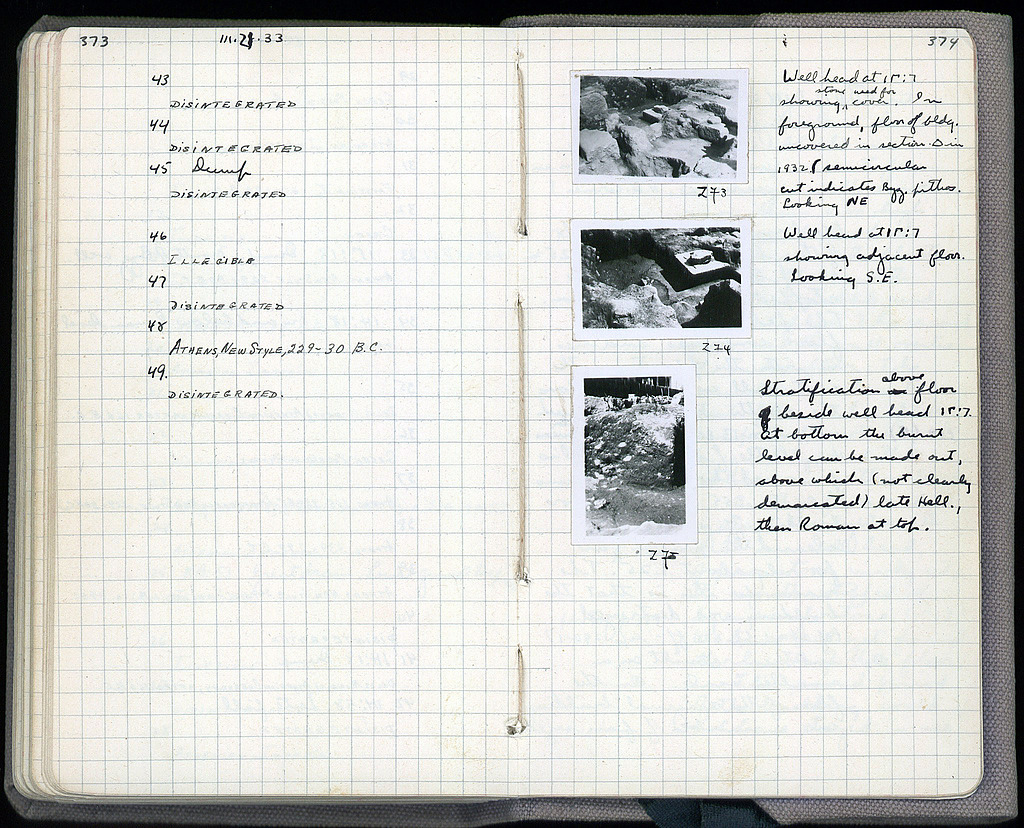 373
III.21.33
43
DISINTEGRATED
44
DISINTEGRATED
45 Dump
DISINTEGRATED
46
ILLEGIBLE
47
DISINTEGRATED
48
ATHENS, NEW STYLE, 229-30 B.C.
49.
DISINTEGRATED.
374
Z73
Well head at ΙΓ:7
stone used for
showing, cover. In
foreground, floor of bldg.
uncovered in section Δ in
1932, semicircular
cut indicates Byz. pithos.
Looking NE
Z74
Well head at ΙΓ:7
showing adjacent floor.
Looking S.E.
Z75
above
Stratification floor
beside well head ΙΓ:7.
At bottom the burnt
level can be made out,
above which (not clearly
demarcated) late Hell.,
then Roman at top.